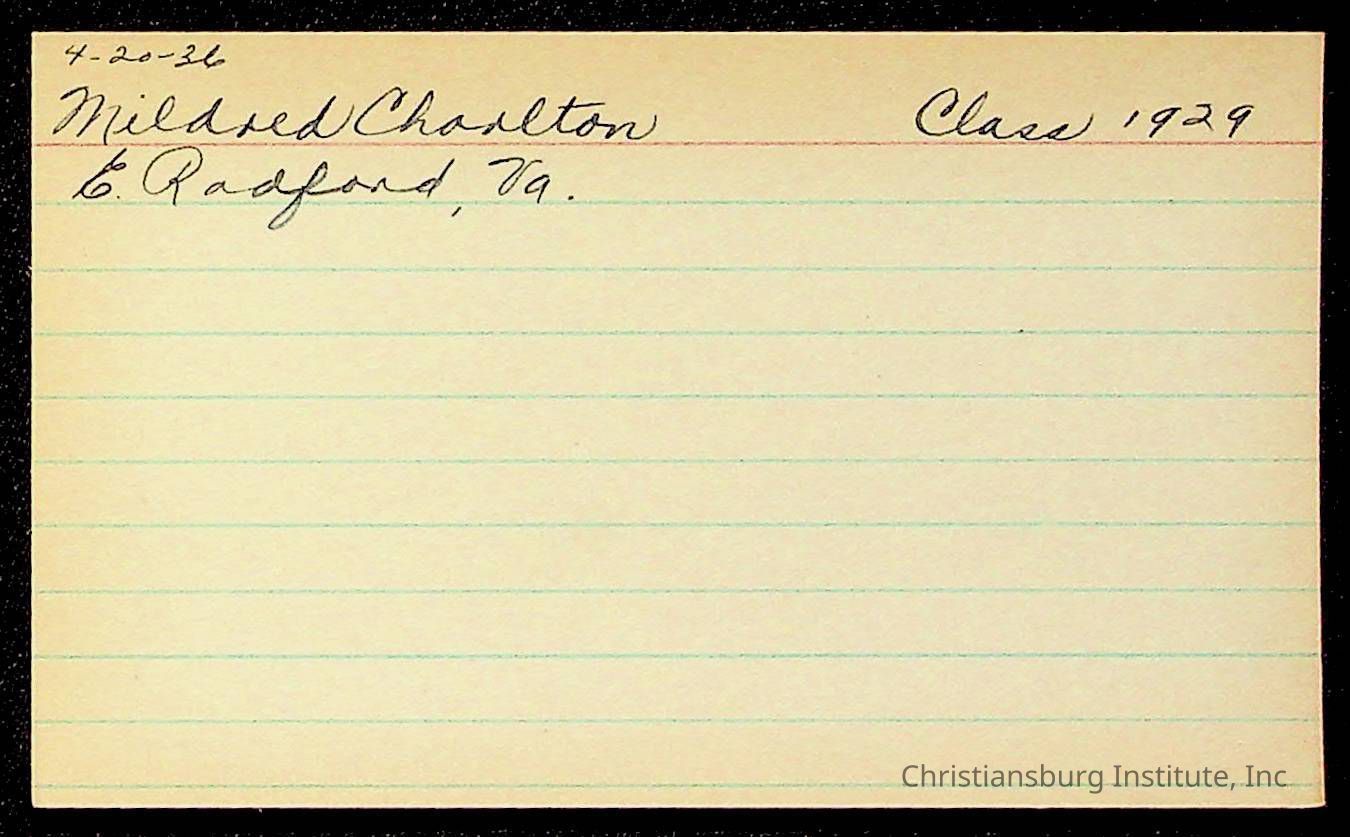 4-20-36
Mildred Charlton Class 1929
E. Radford, Va.
Christiansburg Institute, Inc